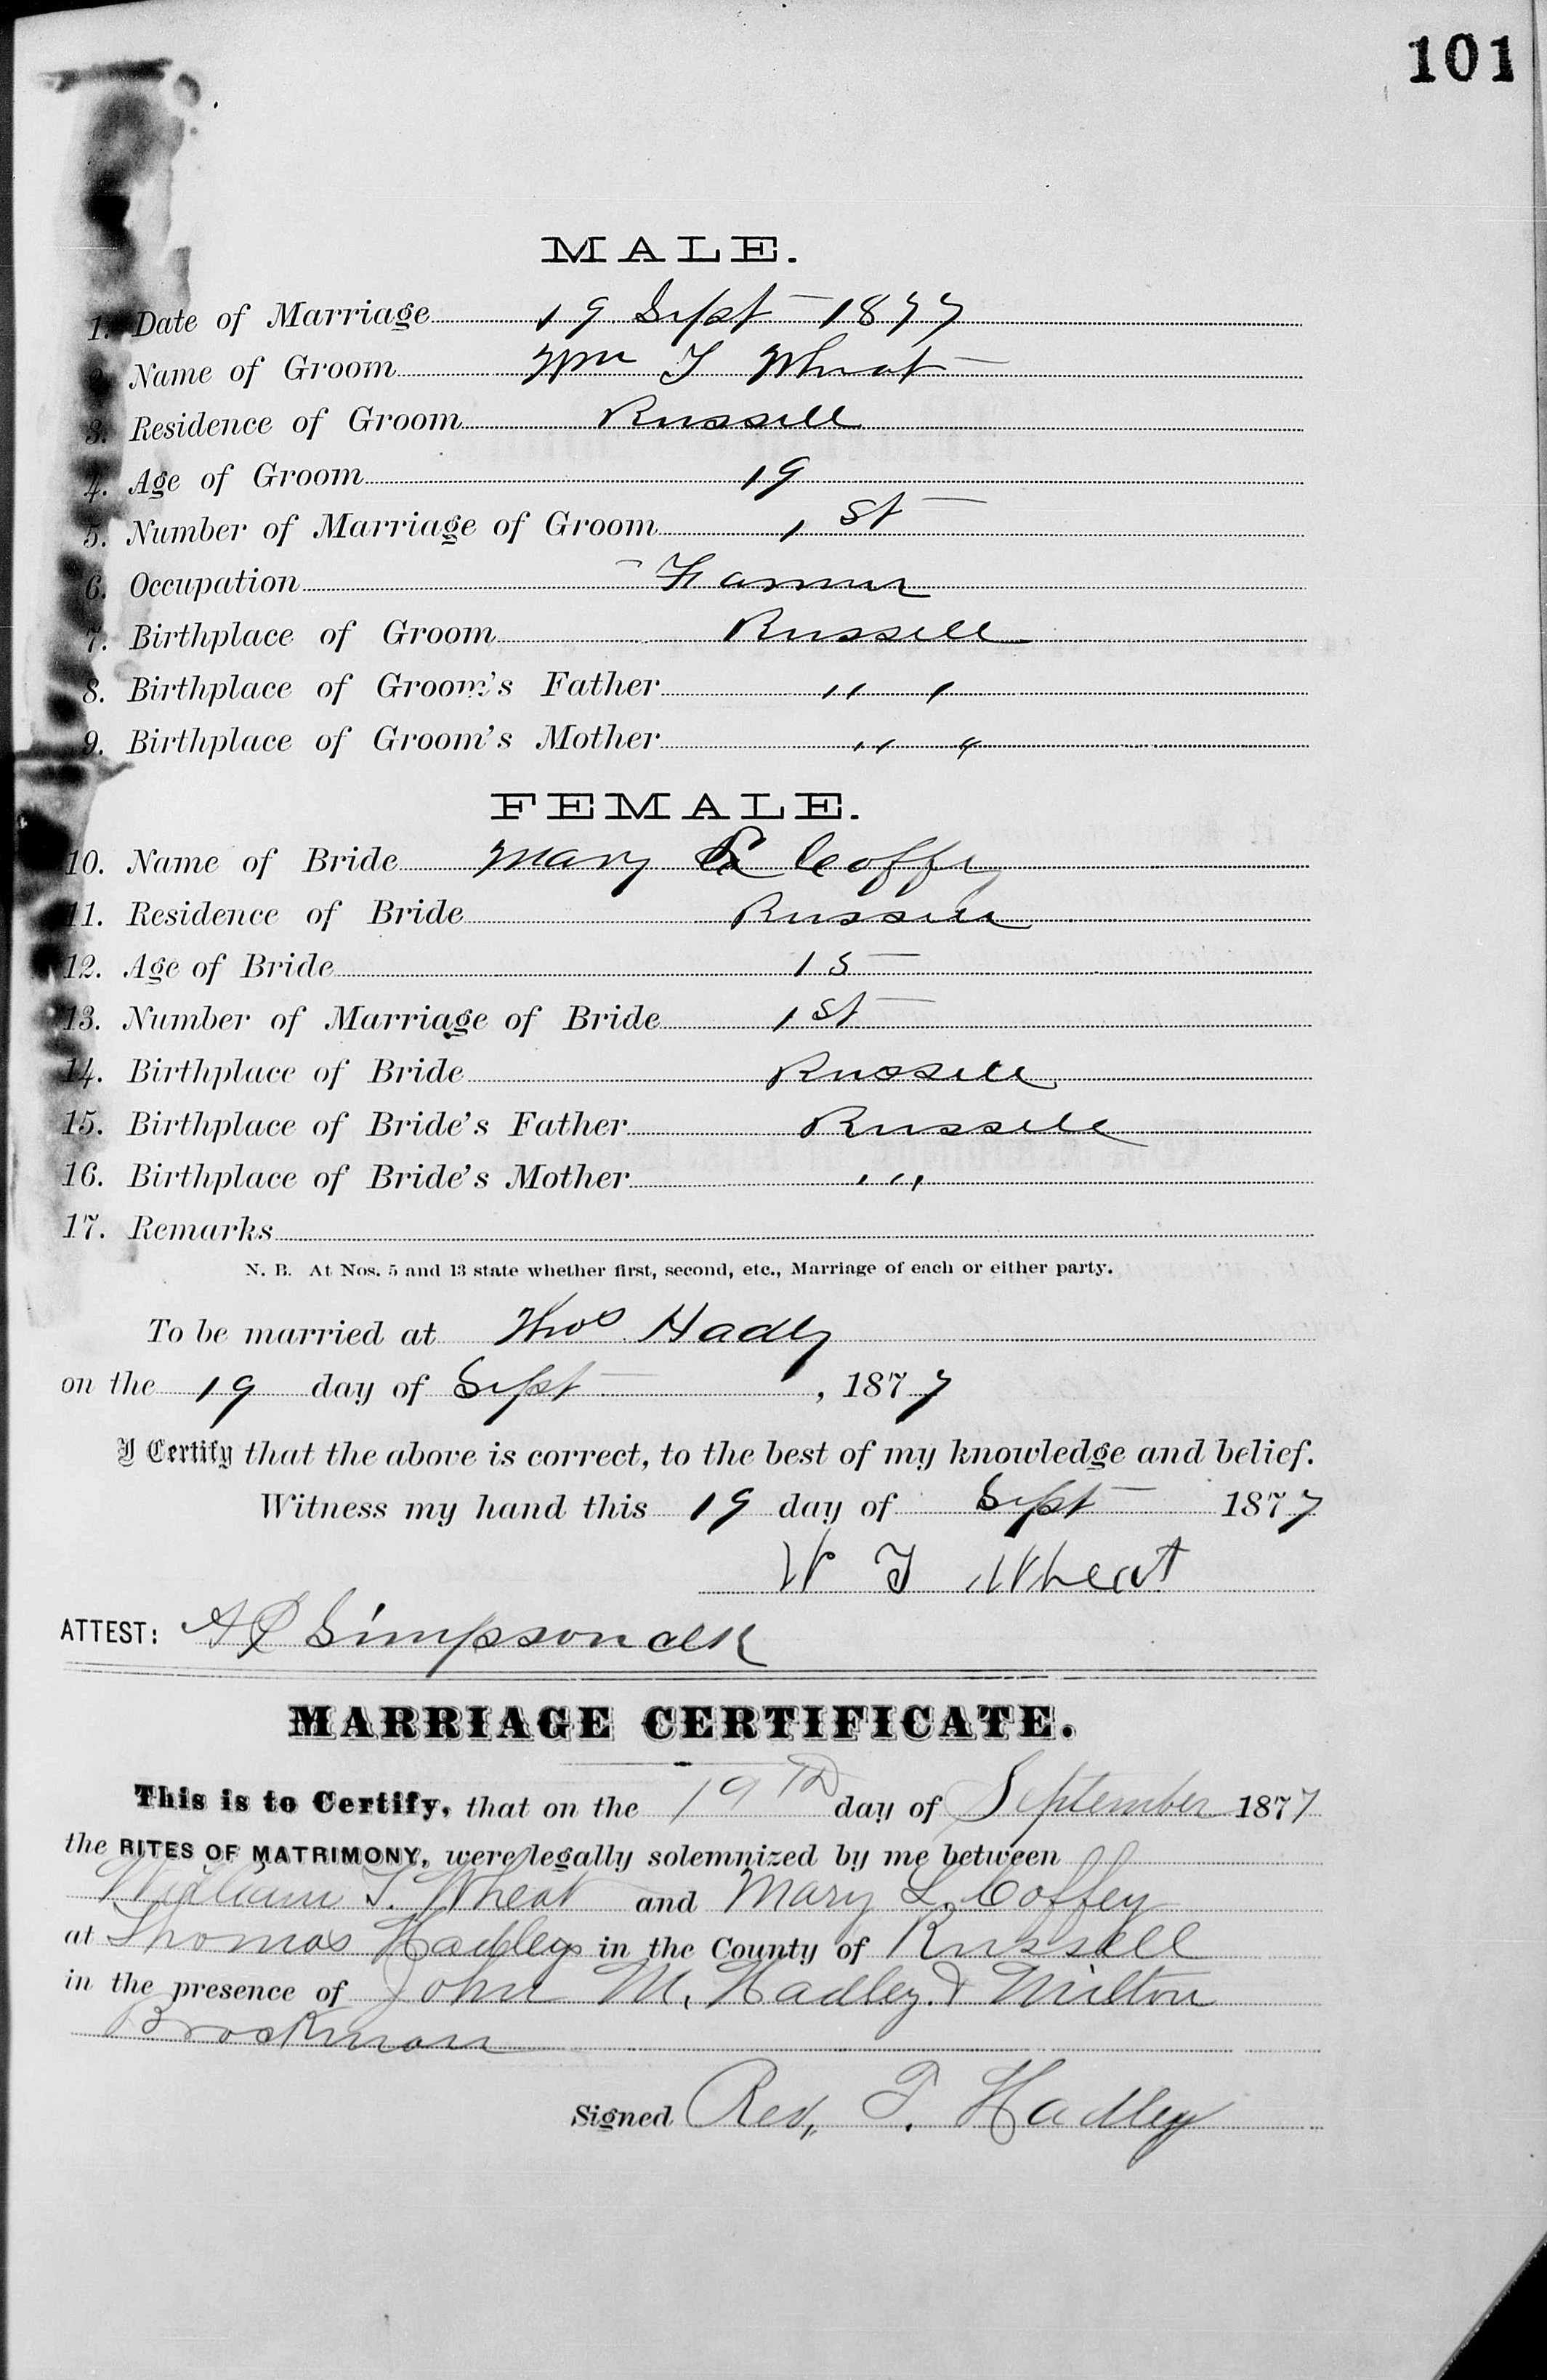 101
MALE.
1. Date of Marriage 19 Sept 1877
2. Name of Groom Wm T Wheat
3. Residence of Groom Russell
4. Age of Groom 19
5. Number of Marriage of Groom 1st
6. Occupation Farmer
7. Birthplace of Groom Russell
8. Birthplace of Groom's Father " "
9. Birthplace of Groom's Mother " "
FEMALE.
10. Name of Bride Mary L Coffey
11. Residence of Bride Russell
12. Age of Bride 15
13. Number of Marriage of Bride 1st
14. Birthplace of Bride Russell
15. Birthplace of Bride's Father Russell
16. Birthplace of Bride's Mother " "
17. Remarks
N. B. At Nos. 5 and 13 state whether first, second, etc., Marriage of each or either party.
To be married at Thos Hadly
on the 19 day of Sept, 1877
I Certify that the above is correct, to the best of my knowledge and belief.
Witness my hand this 19 day of Sept 1877
W T Wheat
ATTEST: Simpson clk
MARRIAGE CERTIFICATE.
This is to Certify, that on the 19th day of September 1877
the RITES OF MATRIMONY, were legally solemnized by me between
William T. Wheat and Mary L. Coffey
at Thomas Hadleys in the County of Russell
in the presence of John M. Hadley & Milton
Brockman
Signed Rev, T. Hadley